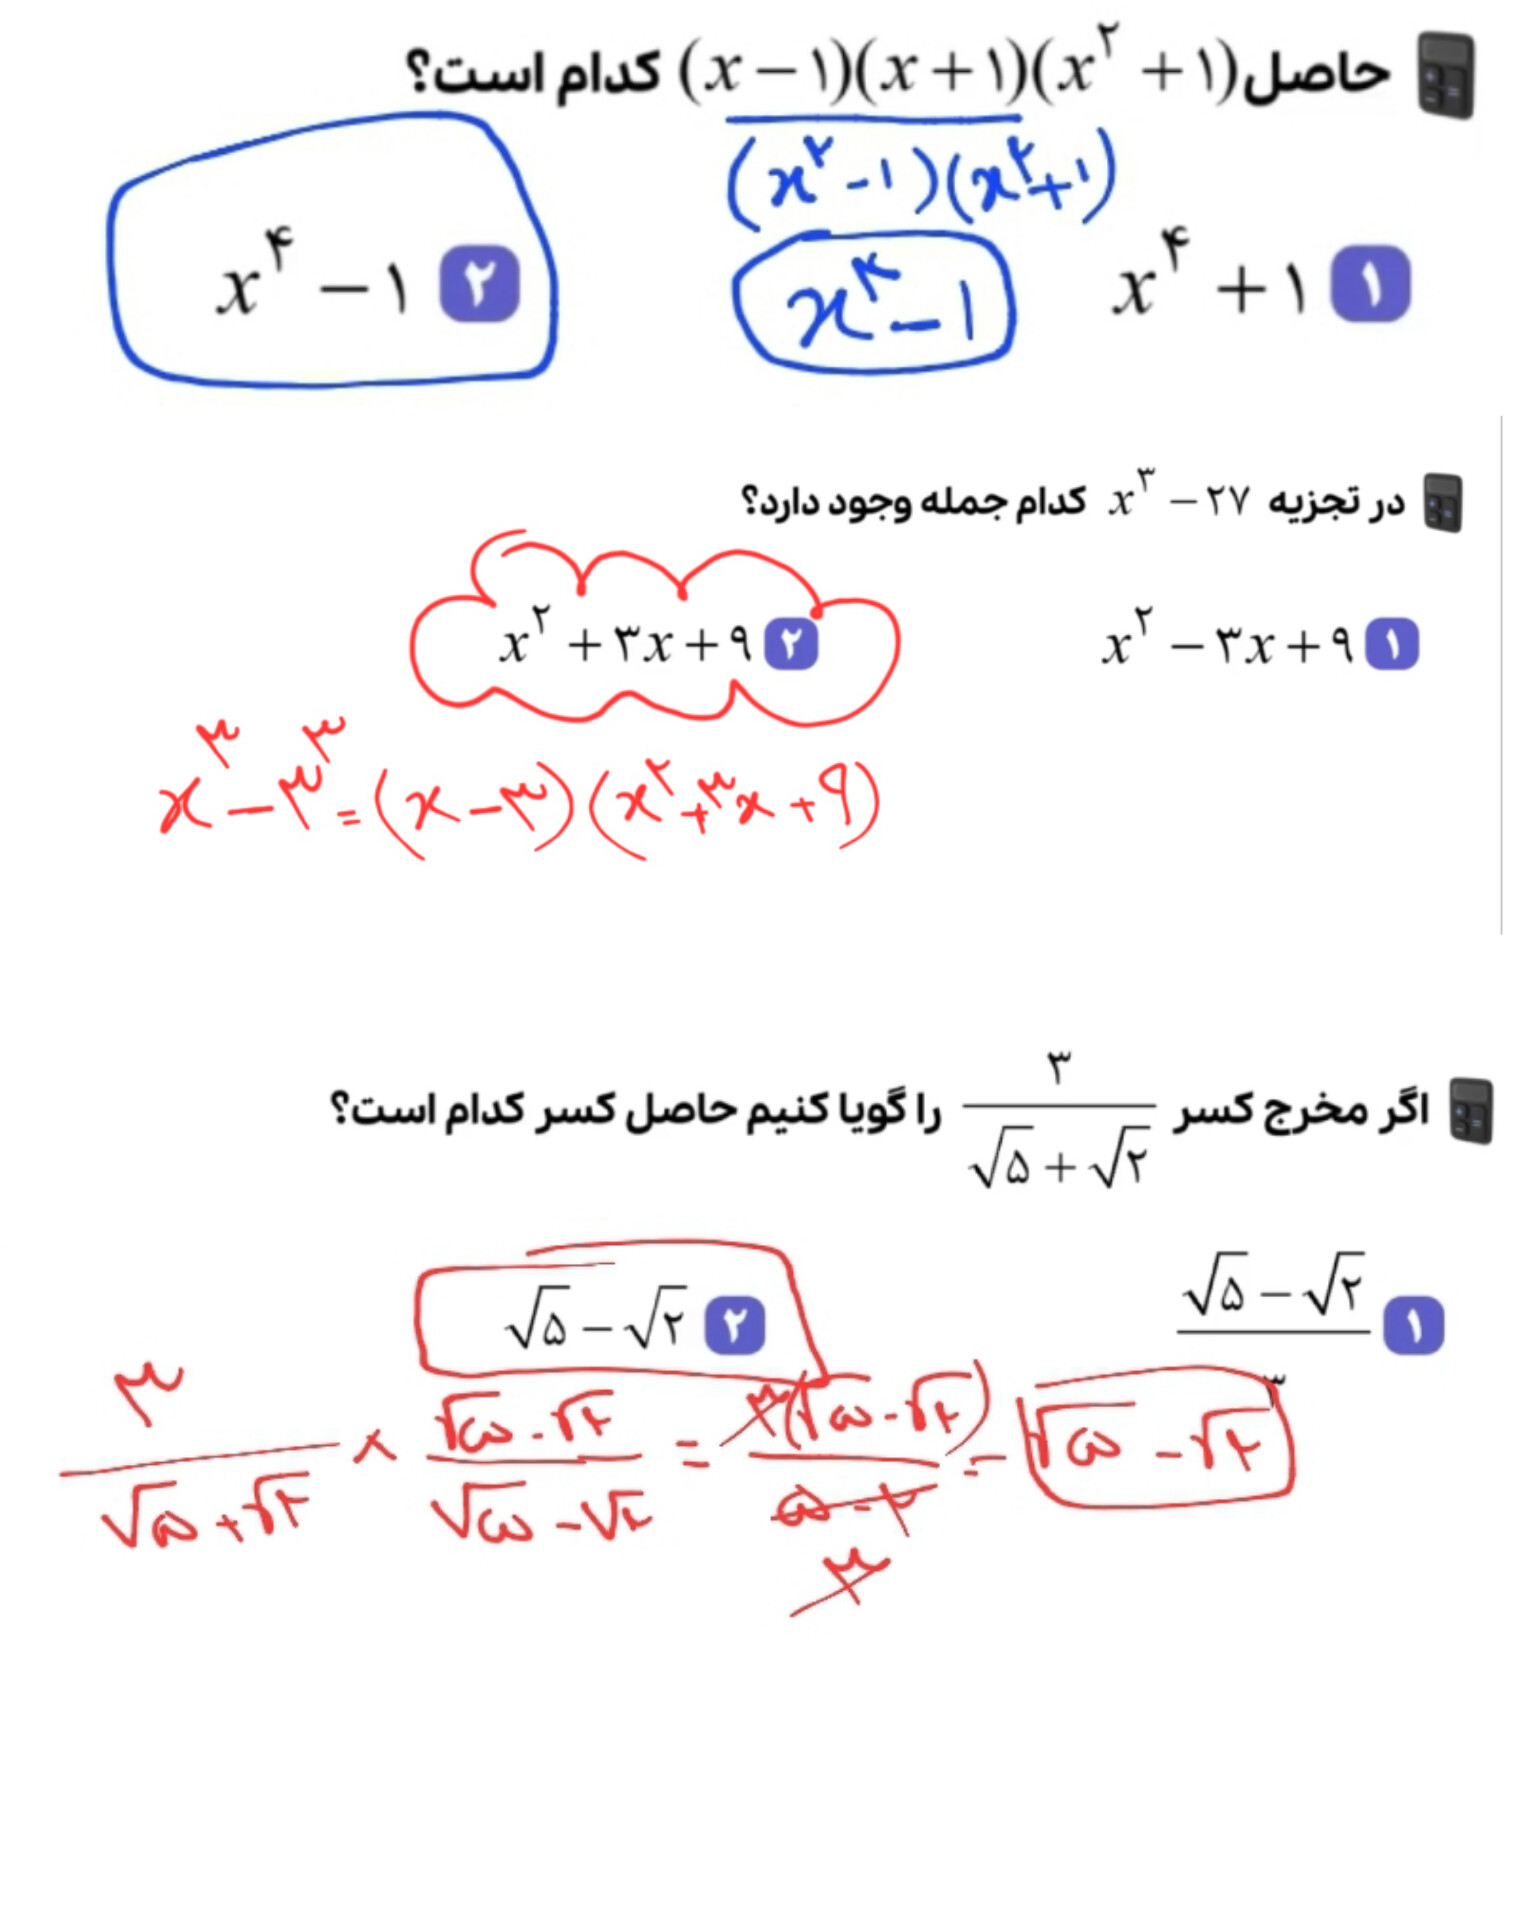 حاصل (x − ۱)(x + ۱)(x^۲ + ۱) کدام است؟
(x^۲ - ۱)(x^۲ + ۱)
۱ x^۴ + ۱
۲ x^۴ − ۱
x^۴ - ۱
در تجزیه x^۳ − ۲۷ کدام جمله وجود دارد؟
۱ x^۲ − ۳x + ۹
۲ x^۲ + ۳x + ۹
x^۳ - ۳^۳ = (x - ۳)(x^۲ + ۳x + ۹)
اگر مخرج کسر ۳/(√۵ + √۲) را گویا کنیم حاصل کسر کدام است؟
۱ (√۵ − √۲)/۳
۲ √۵ − √۲
۳/(√۵ + √۲) × (√۵ - √۲)/(√۵ - √۲) = ۳(√۵ - √۲)/(۵ - ۲) = √۵ - √۲
۳